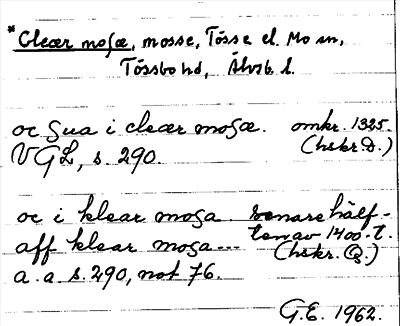 *Cleær moſæ, mosse, Tössö el. Mo sn,
Tössbo hd, Älvsb. l.
oc sua i cleær moſæ. omkr. 1325.
VGL, s. 290. (hskr D.)
oc i klear mosa. senare hälf-
aff klear mosa... ten av 1400-t.
a. a. s. 290, not 76. (hskr. Q.)
G.E. 1962.